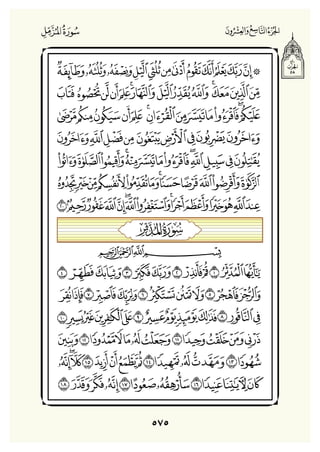 الجُزْءُ التَّاسِعُ وَالعِشْرُونَ سُورَةُ المُزَّمِّل
۞ إِنَّ رَبَّكَ يَعْلَمُ أَنَّكَ تَقُومُ أَدْنَىٰ مِن ثُلُثَيِ ٱلَّيْلِ وَنِصْفَهُۥ وَثُلُثَهُۥ وَطَآئِفَةٌ
مِّنَ ٱلَّذِينَ مَعَكَۚ وَٱللَّهُ يُقَدِّرُ ٱلَّيْلَ وَٱلنَّهَارَۚ عَلِمَ أَن لَّن تُحْصُوهُ فَتَابَ
عَلَيْكُمْۖ فَٱقْرَءُوا۟ مَا تَيَسَّرَ مِنَ ٱلْقُرْءَانِۚ عَلِمَ أَن سَيَكُونُ مِنكُم مَّرْضَىٰ
وَءَاخَرُونَ يَضْرِبُونَ فِى ٱلْأَرْضِ يَبْتَغُونَ مِن فَضْلِ ٱللَّهِ وَءَاخَرُونَ
يُقَٰتِلُونَ فِى سَبِيلِ ٱللَّهِۖ فَٱقْرَءُوا۟ مَا تَيَسَّرَ مِنْهُۚ وَأَقِيمُوا۟ ٱلصَّلَوٰةَ وَءَاتُوا۟
ٱلزَّكَوٰةَ وَأَقْرِضُوا۟ ٱللَّهَ قَرْضًا حَسَنًاۚ وَمَا تُقَدِّمُوا۟ لِأَنفُسِكُم مِّنْ خَيْرٍ تَجِدُوهُ
عِندَ ٱللَّهِ هُوَ خَيْرًا وَأَعْظَمَ أَجْرًاۚ وَٱسْتَغْفِرُوا۟ ٱللَّهَۖ إِنَّ ٱللَّهَ غَفُورٌ رَّحِيمٌۢ ٢٠
سُورَةُ المُدَّثِّرِ
بِسْمِ ٱللَّهِ ٱلرَّحْمَٰنِ ٱلرَّحِيمِ
يَٰٓأَيُّهَا ٱلْمُدَّثِّرُ ١ قُمْ فَأَنذِرْ ٢ وَرَبَّكَ فَكَبِّرْ ٣ وَثِيَابَكَ فَطَهِّرْ ٤
وَٱلرُّجْزَ فَٱهْجُرْ ٥ وَلَا تَمْنُن تَسْتَكْثِرُ ٦ وَلِرَبِّكَ فَٱصْبِرْ ٧ فَإِذَا نُقِرَ
فِى ٱلنَّاقُورِ ٨ فَذَٰلِكَ يَوْمَئِذٍ يَوْمٌ عَسِيرٌ ٩ عَلَى ٱلْكَٰفِرِينَ غَيْرُ يَسِيرٍ ١٠
ذَرْنِى وَمَنْ خَلَقْتُ وَحِيدًا ١١ وَجَعَلْتُ لَهُۥ مَالًا مَّمْدُودًا ١٢ وَبَنِينَ
شُهُودًا ١٣ وَمَهَّدتُّ لَهُۥ تَمْهِيدًا ١٤ ثُمَّ يَطْمَعُ أَنْ أَزِيدَ ١٥ كَلَّآۖ إِنَّهُۥ
كَانَ لِءَايَٰتِنَا عَنِيدًا ١٦ سَأُرْهِقُهُۥ صَعُودًا ١٧ إِنَّهُۥ فَكَّرَ وَقَدَّرَ ١٨
٥٧٥